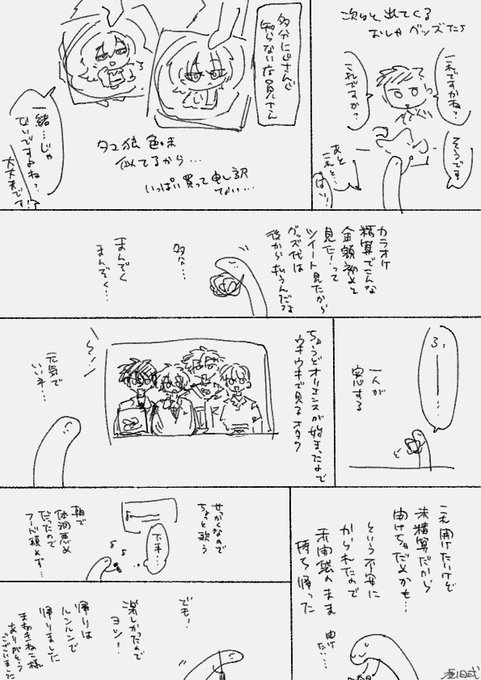 次々と出てくる
おしゃべンズたち
これですかね?
これですか?
そうです
あと
これと
はい!
多分にじさんじ
知らない店員さん
一緒…じゃ
ないですよね?
大丈夫です!
タコ狼 色味
似てるから…
いっぱい買って申し訳
ない…
カラオケ
精算でこんな
金額初めて
見たーって
ツイート見たから
グッズ代は
後から払うんだな
多分…
まんぞく
まんぞく…
一人が
実感する
ちょうどオリエンスが始まったので
ウキウキで見るオタク
元気で
いいネ…
これ開けたいけど
未精算だから
開けちゃだめかも…
という不安に
かられたので
未開封のまま
持ち帰った
せっかくなので
ちょっと歌う
下手…
朝で
体調悪め
だったので
フード頼めず…
でも!
楽しかったので
ヨシ!
帰りは
ルンルンで
帰りました
まねきねこ様
ありがとう
ございました